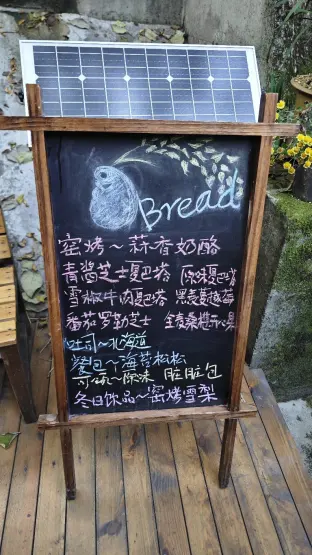 Bread
窑烤~蒜香奶酪
青酱芝士夏巴塔 原味夏巴塔
雪椒牛肉夏巴塔 黑麦蔓越莓
番茄罗勒芝士 全麦桑椹开心果
吐司~北海道
餐包~海苔松松
可颂~原味 脏脏包
冬日饮品~窑烤雪梨